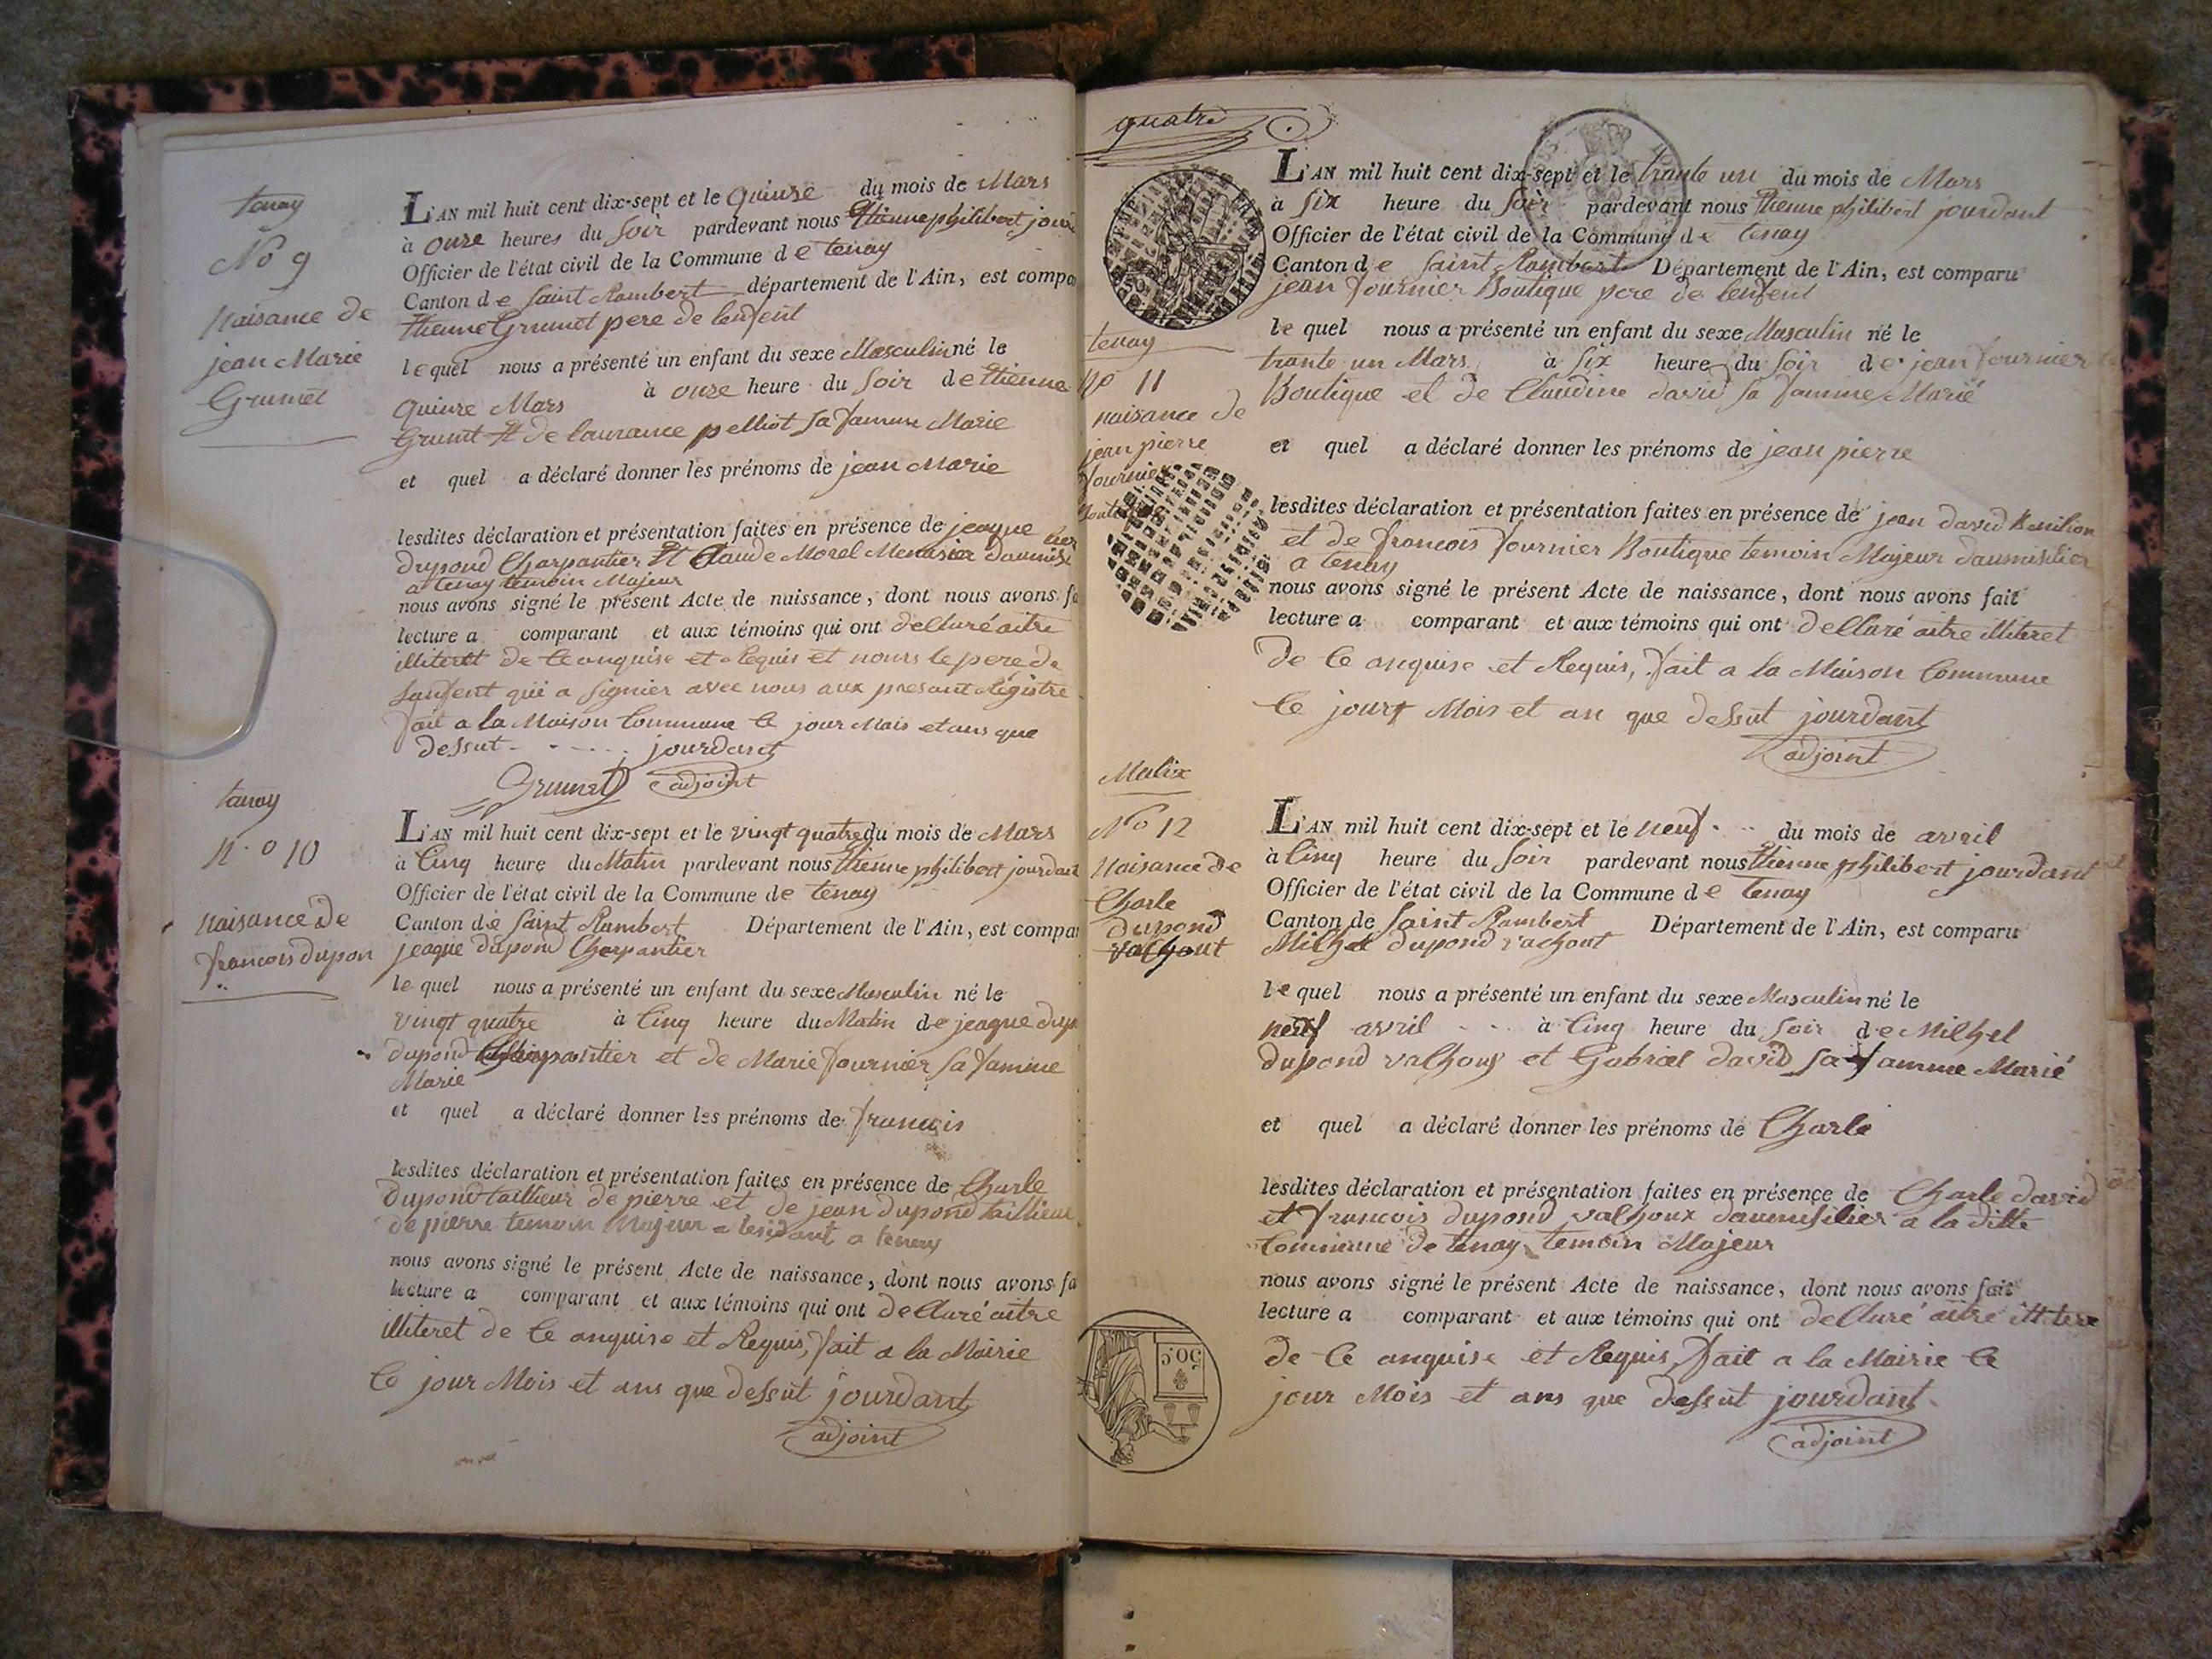 tenay
No 9
Naisance de
jean Marie
Grumet
L'AN mil huit cent dix-sept et le quinze du mois de Mars
à onze heures du soir pardevant nous Etienne philibert
Officier de l'état civil de la Commune de tenay
Canton de Saint Rambert département de l'Ain, est
Etienne Grumet pere de lenfent
lequel nous a présenté un enfant du sexe Masculin né le
quinze Mars à onze heure du soir de Etienne
Grumet Et de laurance pelliot sa famme Marie
et quel a déclaré donner les prénoms de jean Marie
lesdites déclaration et présentation faites en présence de jeaque
Dupond Charpantier Et Claude Morel Menusier
a tenay temoin Majeur
nous avons signé le présent Acte de naissance, dont nous avons
lecture a comparant et aux témoins qui ont declaré aitre
illiteret de Ce anquise et Requis et nous le pere de
lanfent qui a signier avec nous aux presant Registre
fait a la Maison Commune le jour Mois et ans que
dessut jourdant
Grumet adjoint
tenay
N.o 10
naisance de
francois dupon
L'AN mil huit cent dix-sept et le vingt quatre du mois de Mars
à Cinq heure du Matin pardevant nous Etienne philibert jourdant
Officier de l'état civil de la Commune de tenay
Canton de Saint Rambert Département de l'Ain, est
jeaque dupond Charpantier
lequel nous a présenté un enfant du sexe Masculin né le
vingt quatre à Cinq heure du Matin de jeaque
dupond Charpantier et de Marie fournier sa famme
Marie
et quel a déclaré donner les prénoms de francois
lesdites déclaration et présentation faites en présence de Charle
dupond tailleur de pierre et de jean dupond tailleur
de pierre temoin Majeur a tenay
nous avons signé le présent Acte de naissance, dont nous avons
lecture a comparant et aux témoins qui ont declaré aitre
illiteret de Ce anquise et Requis, fait a la Mairie
le jour Mois et ans que dessut jourdant
adjoint
quatre
tenay
No 11
naisance de
jean pierre
fournier
L'AN mil huit cent dix-sept et le trante un du mois de Mars
à six heure du soir pardevant nous Etienne philibert jourdant
Officier de l'état civil de la Commune de tenay
Canton de Saint Rambert Département de l'Ain, est comparu
jean fournier Boutique pere de lenfent
lequel nous a présenté un enfant du sexe Masculin né le
trante un Mars à six heure du soir de jean fournier
Boutique et de Claudine david sa famme Marié
et quel a déclaré donner les prénoms de jean pierre
lesdites déclaration et présentation faites en présence de jean david
et de francois fournier Boutique temoin Majeur
a tenay
nous avons signé le présent Acte de naissance, dont nous avons fait
lecture a comparant et aux témoins qui ont declaré aitre illiteret
de Ce anquise et Requis, fait a la Maison Commune
le jour Mois et an que dessut jourdant
adjoint
No 12
Naisance de
Charle
dupond
L'AN mil huit cent dix-sept et le neuf du mois de avril
à Cinq heure du soir pardevant nous Etienne philibert jourdant
Officier de l'état civil de la Commune de tenay
Canton de Saint Rambert Département de l'Ain, est comparu
Milhel dupond vachout
lequel nous a présenté un enfant du sexe Masculin né le
neuf avril à Cinq heure du soir de Milhel
dupond et Gabriel david sa famme Marié
et quel a déclaré donner les prénoms de Charle
lesdites déclaration et présentation faites en présence de Charle david
et francois dupond valhoux a la ditte
Commune de tenay temoin Majeur
nous avons signé le présent Acte de naissance, dont nous avons fait
lecture a comparant et aux témoins qui ont declaré aitre
de Ce anquise et Requis, fait a la Mairie le
jour Mois et ans que dessut jourdant
adjoint
50.c